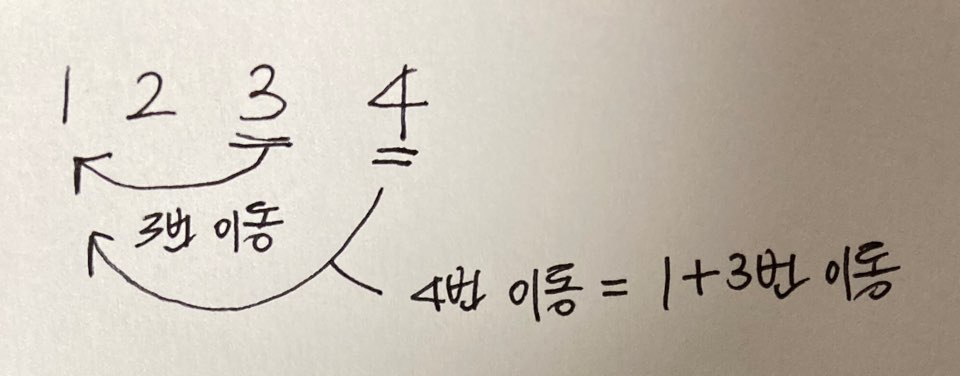 1 2 3 4
3번 이동
4번 이동 = 1+3번 이동